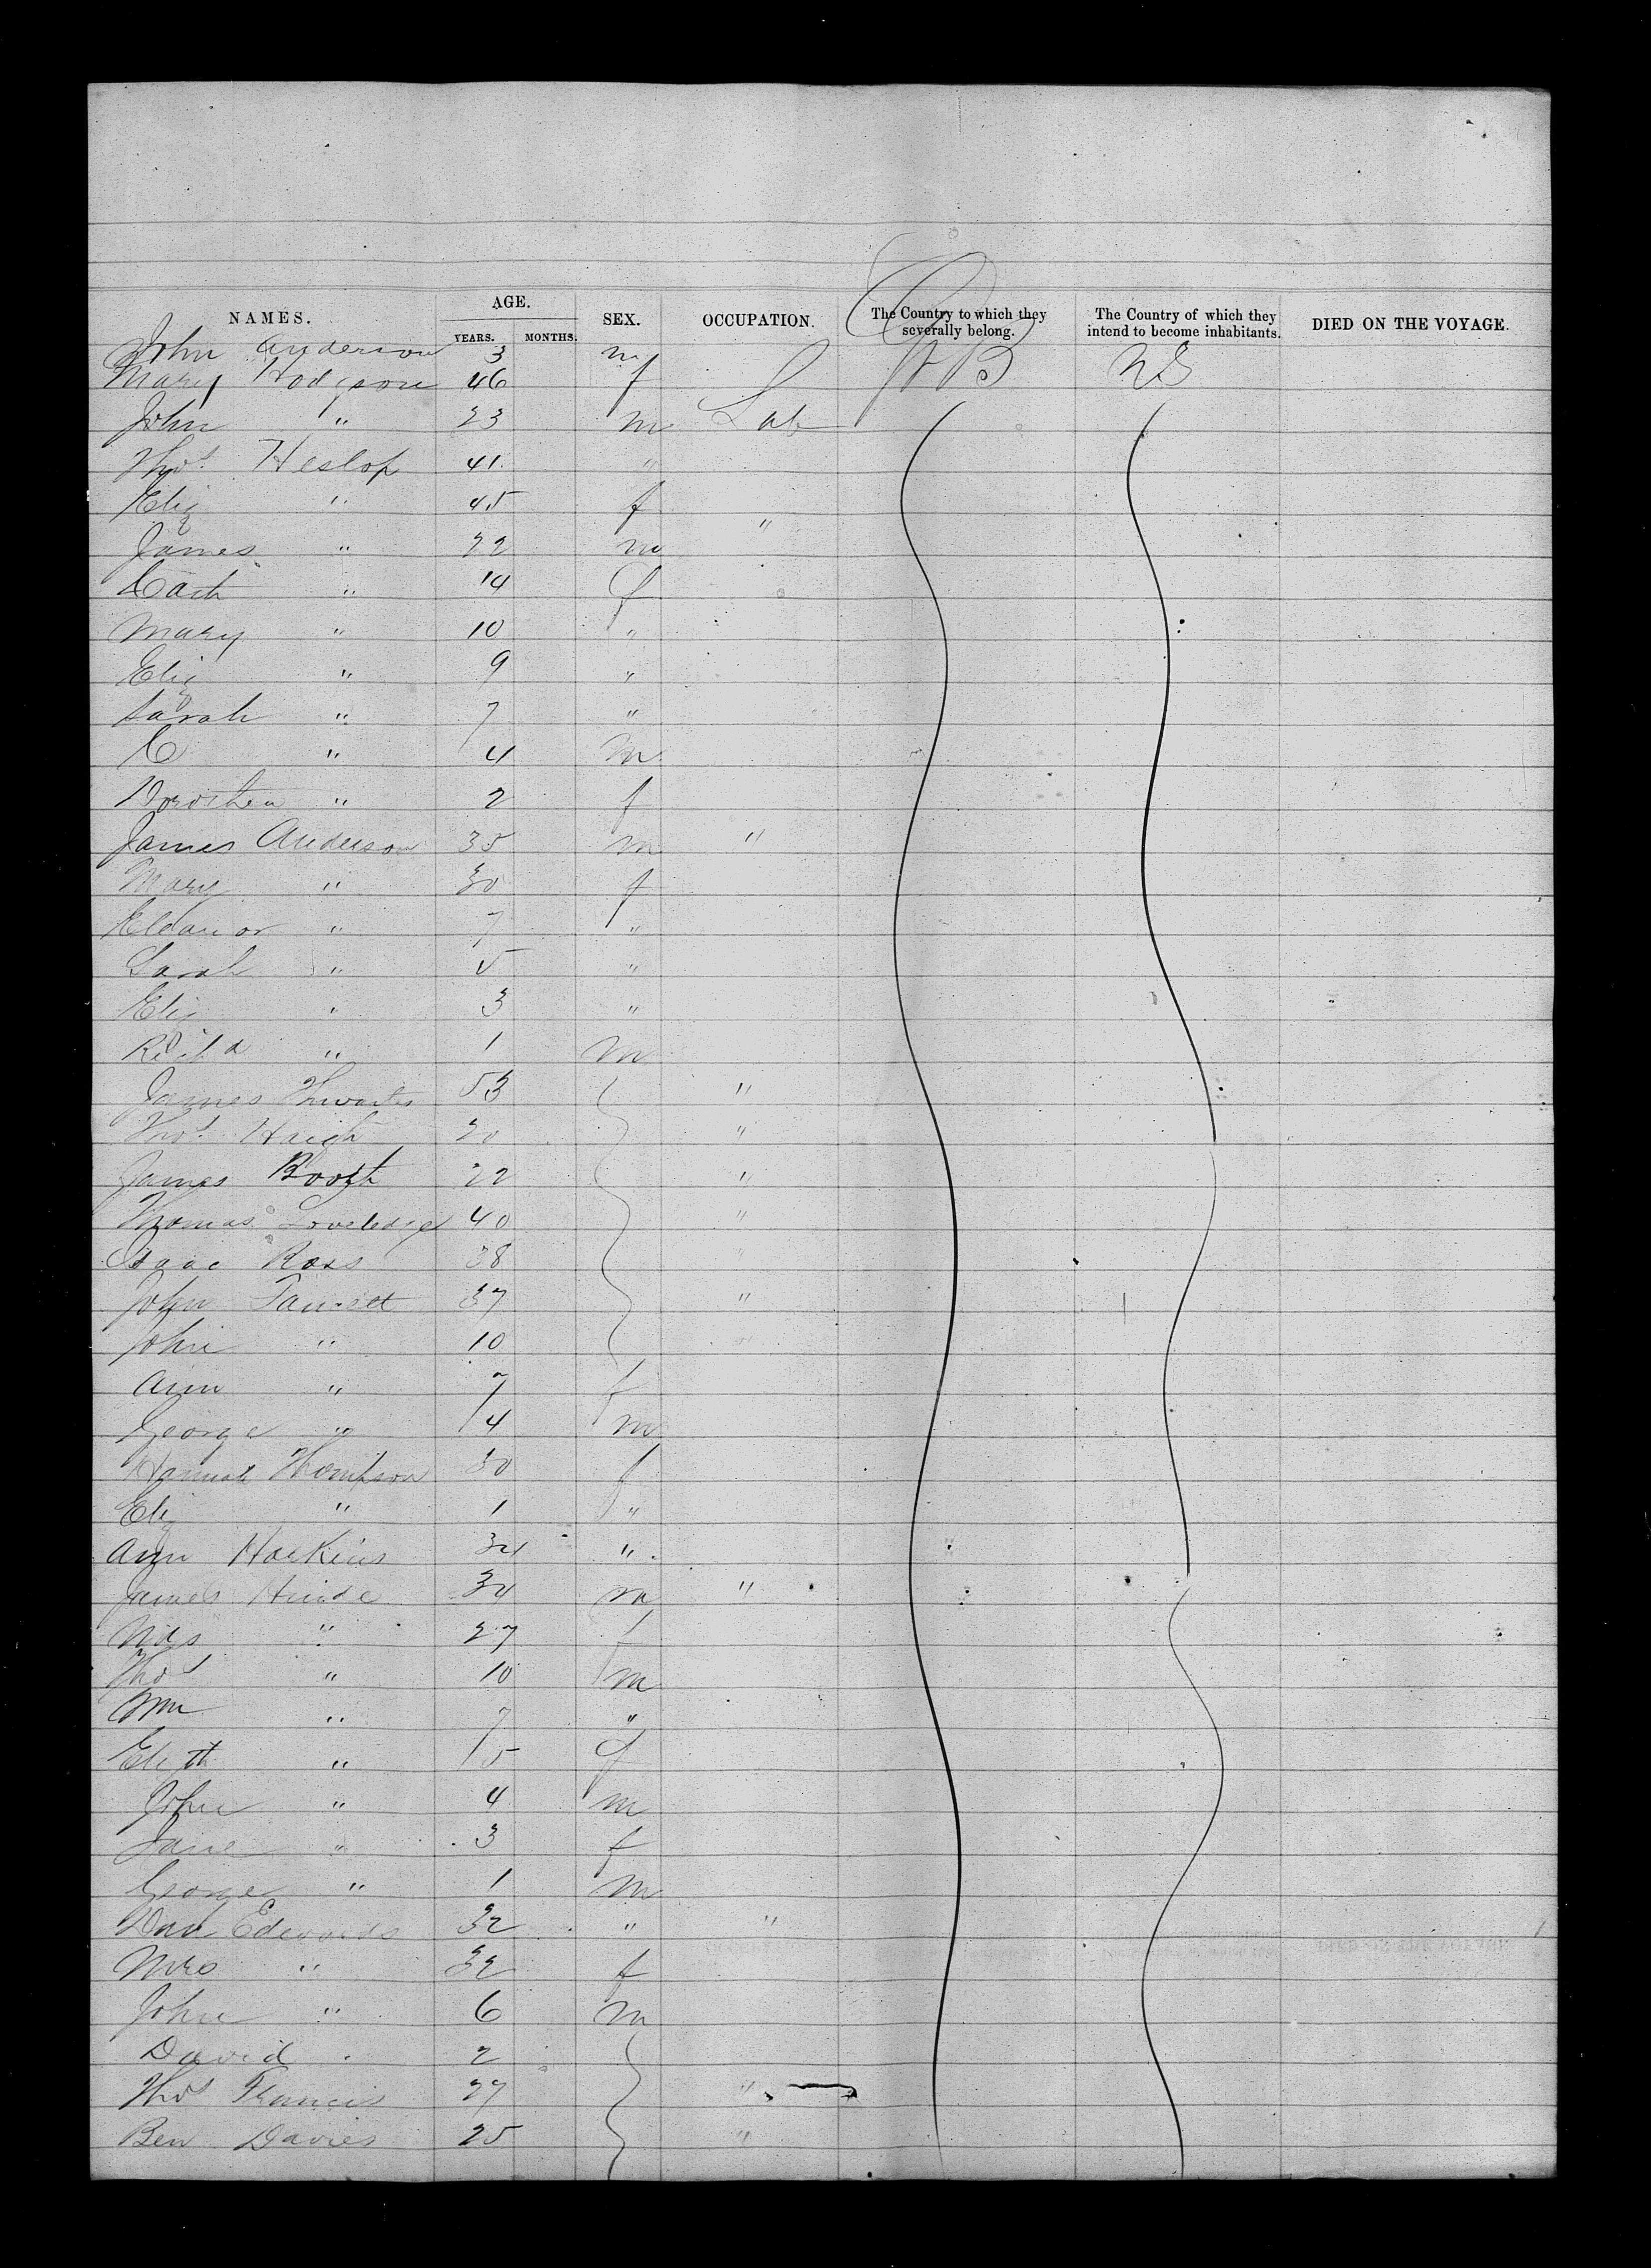 NAMES. AGE. SEX. OCCUPATION. The Country to which they severally belong. The Country of which they intend to become inhabitants. DIED ON THE VOYAGE.
YEARS. MONTHS.
John Anderson 3 m
Mary Hodgson 46 f GB US
John " 23 m Lab
Thos Heslop 41 "
Eliz " 45 f
James " 22 m "
Cath " 14 f
Mary " 10 "
Eliz " 9 "
Sarah " 7 "
C " 4 m
Dorothea " 2 f
James Anderson 35 m "
Mary " 30 f
Eleanor " 7 "
Sarah " 5 "
Eliz " 3 "
Richd " 1 m
James Thwaites 53 "
Thos Haigh 20 "
James Booth 22 "
Thomas 40 "
Isaac Ross 38
John 37 "
John " 10
Ann " 7 f
George " 4 m
Hannah Thompson 30 f
Eliz " 1 "
Ann Hockins 34 "
James Hinde 34 m "
Mrs " 27 f
Thos " 10 m
Wm " 7 "
Elizth " 5 f
John " 4 m
Jane " 3 f
George " 1 m
Davd Edwards 32 " "
Mrs " 32 f
John " 6 m
David " 2
Thos Francis 27 "
Ben Davies 25 "